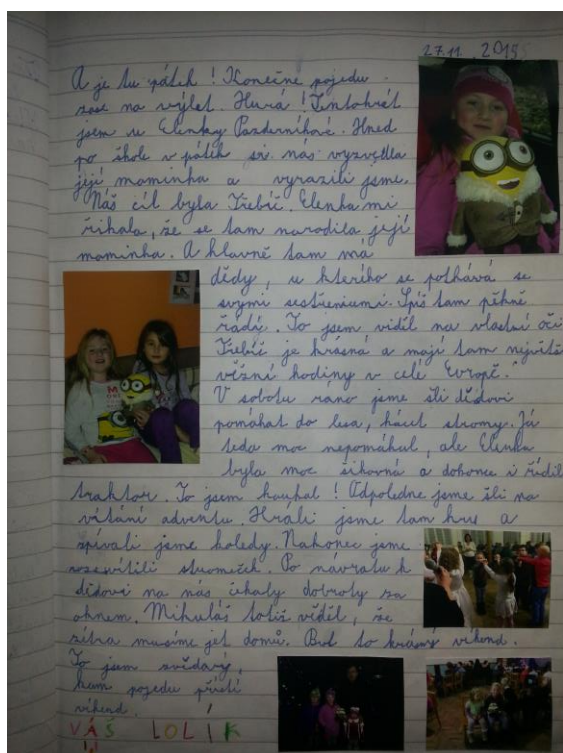 27.11. 2015
A je tu pátek! Konečně pojedu
zase na výlet. Hurá! Tentokrát
jsem u Elenky Pazderníkové. Hned
po škole v pátek si nás vyzvedla
její maminka a vyrazili jsme.
Náš cíl byla Třebíč. Elenka mi
říkala, že se tam narodila její
maminka. A hlavně tam má
dědy, u kterého se potkává se
svými sestřenicemi. Spíš tam pěkně
řádí. To jsem viděl na vlastní oči
Třebíč je krásná a mají tam největší
věžní hodiny v celé Evropě.
V sobotu ráno jsme šli dědovi
pomáhat do lesa, kácet stromy. Já
teda moc nepomáhal, ale Elenka
byla moc šikovná a dokonce i řídil
traktor. To jsem koukal! Odpoledne jsme šli na
vítání adventu. Hráli jsme tam hru a
zpívali jsme koledy. Nakonec jsme
rozsvítili stromeček. Po navratu k
dědovi na nás čekaly dobroty za
oknem. Mikuláš totiž věděl, že
zítra musíme jet domů. Byl to krásný víkend.
To jsem zvědavý,
kam pojedu příští
víkend.
VÁŠ LOLIK